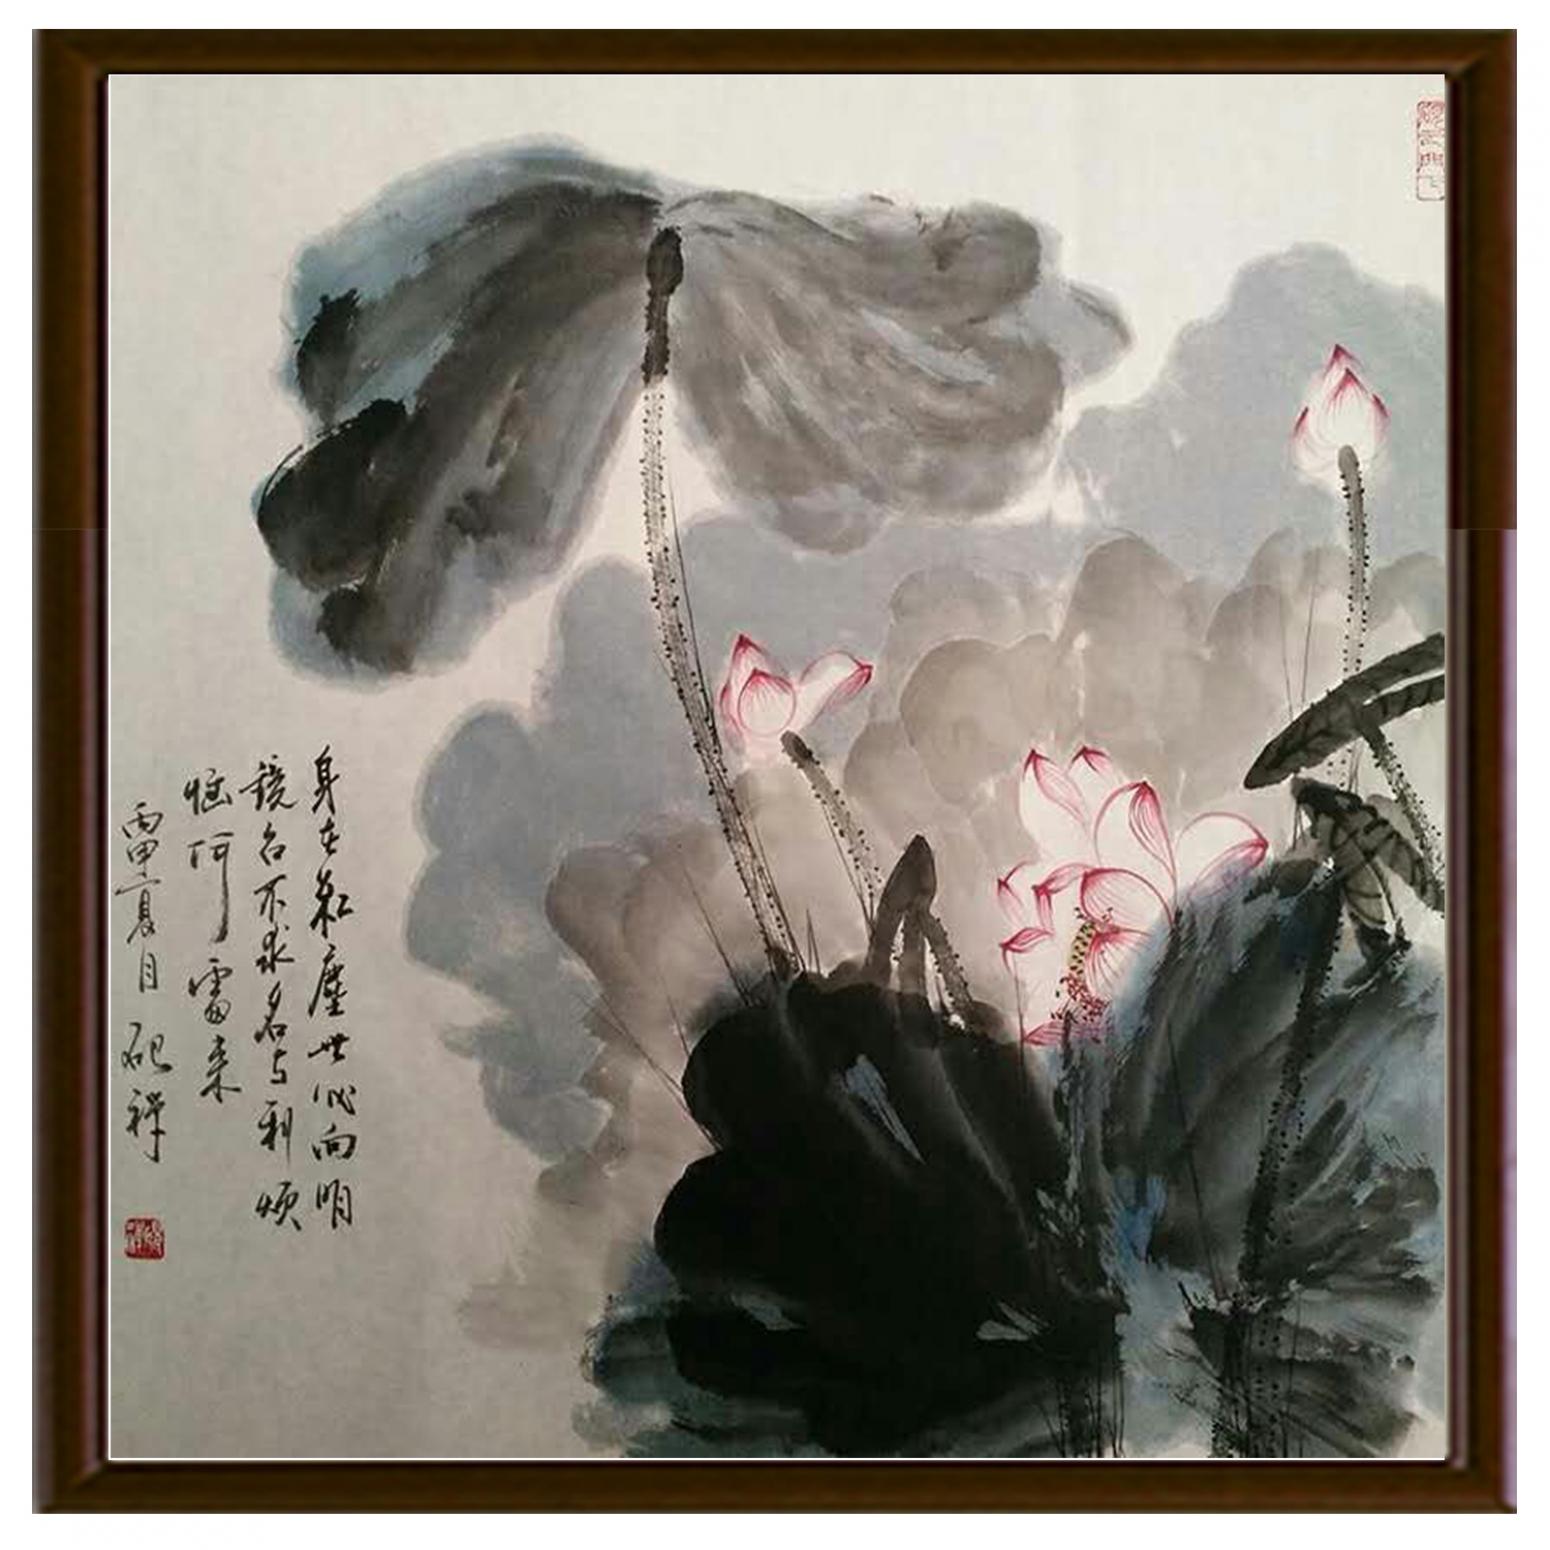 身在红尘世心向明
镜台不求名与利烦
恼何须来
丙申夏月砚祥